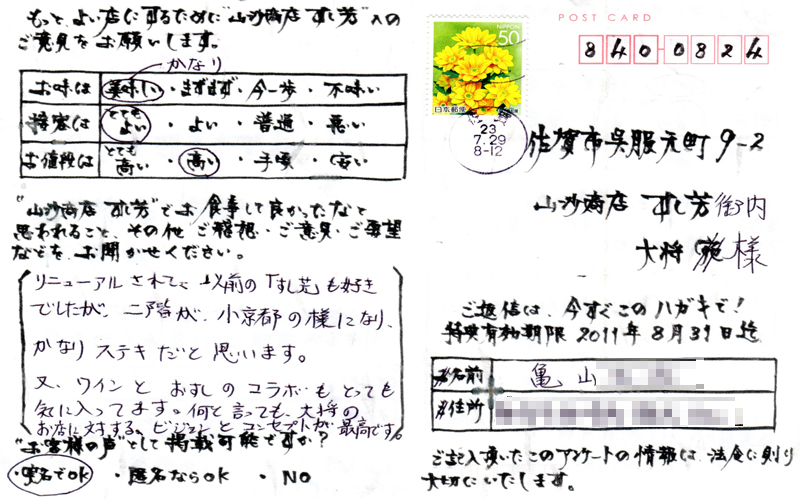 もっとよい店にするために"山沙商店 すし芳"への
ご意見をお願いします。
かなり
お味は 美味しい・まずまず・今一歩・不味い
接客は とてもよい・よい・普通・悪い
お値段は とても高い・高い・手頃・安い
"山沙商店 すし芳"でお食事して良かったなと
思われること、その他ご感想・ご意見・ご要望
などを、お聞かせください。
リニューアルされて、以前の「すし芳」も好き
でしたが、二階が、小京都の様になり、
かなりステキだと思います。
又、ワインとおすしのコラボもとっても
気に入ってます。何と言っても、大将の
お店に対する、ビジョンとコンセプトが最高です。
"お客様の声"として掲載可能ですか?
・実名でOK ・匿名ならOK ・NO
POST CARD
日本郵便 50
8400824
23
7.29
8-12
佐賀市呉服元町9-2
山沙商店 すし芳 御内
大将 様
ご返信は、今すぐこのハガキで!
特典有効期限 2011年8月31日迄
お名前 亀山
ご住所
ご記入頂いたこのアンケートの情報は、法令に則り
大切にいたします。